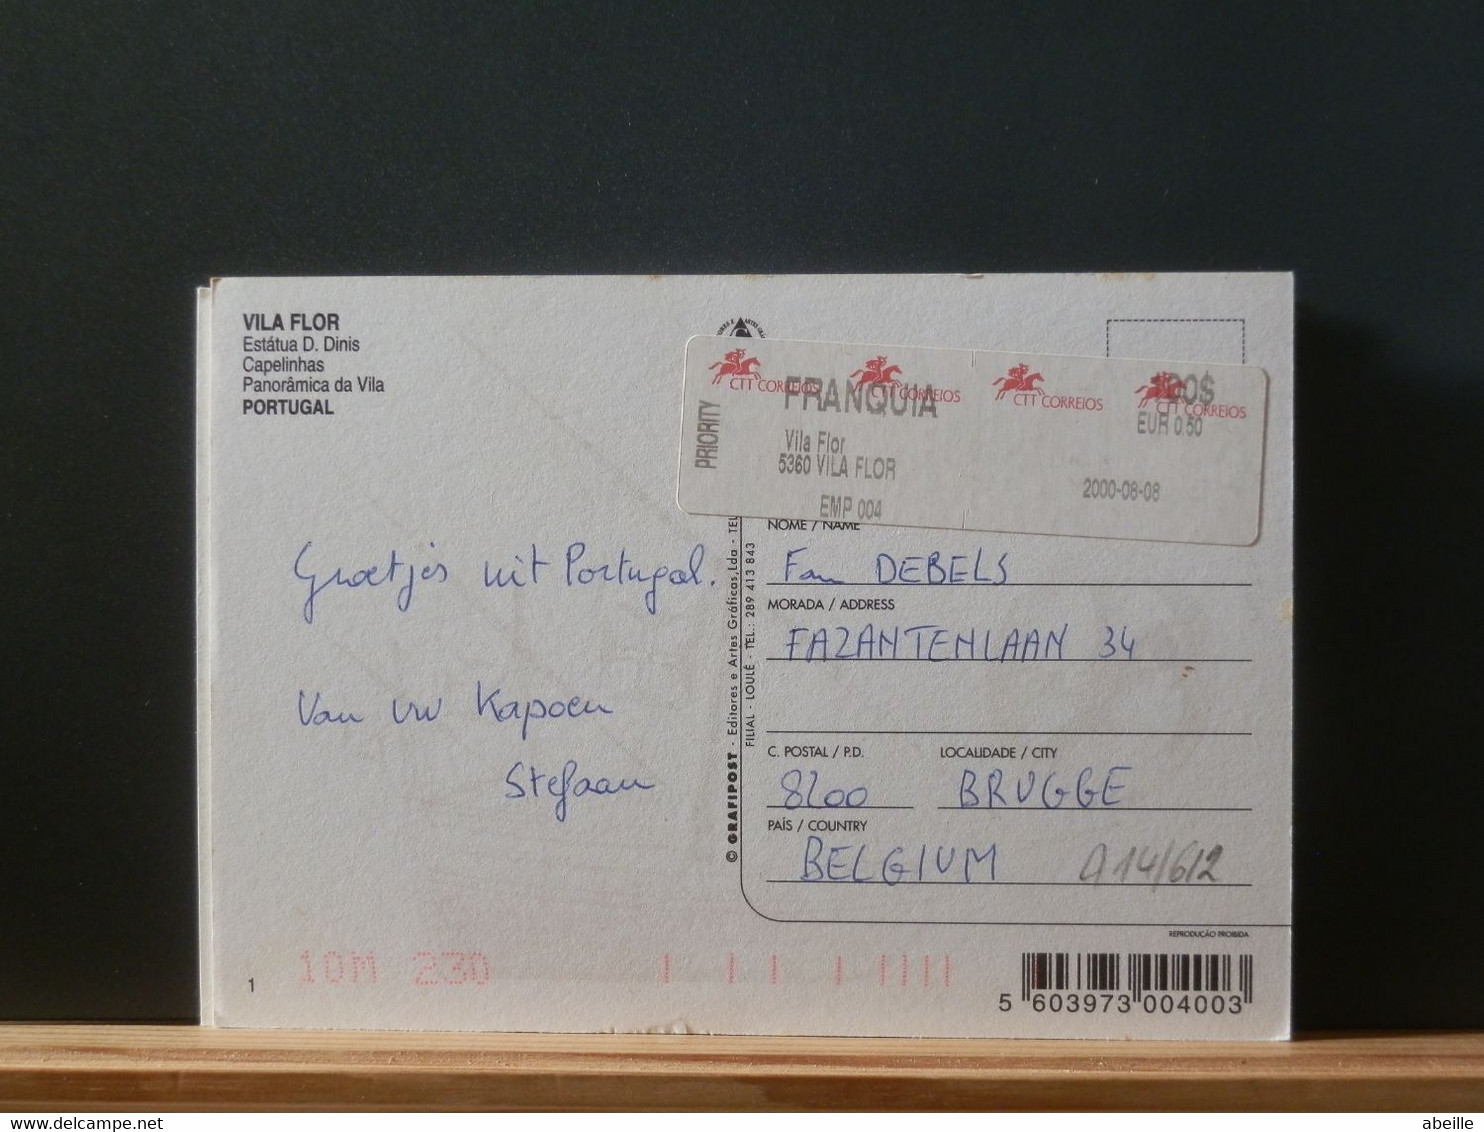 VILA FLOR
Estátua D. Dinis
Capelinhas
Panorâmica da Vila
PORTUGAL
CTT CORREIOS CTT CORREIOS CTT CORREIOS CTT CORREIOS
PRIORITY
FRANQUIA
100$
EUR 0.50
Vila Flor
5360 VILA FLOR
2000-08-08
EMP 004
Groetjes uit Portugal.
Van uw Kapoen
Stefaan
© GRAFIPOST - Editores e Artes Gráficas, Lda - TEL
FILIAL - LOULÉ - TEL.: 289 413 843
NOME / NAME
Fam DEBELS
MORADA / ADDRESS
FAZANTENLAAN 34
C. POSTAL / P.D. LOCALIDADE / CITY
8200 BRUGGE
PAÍS / COUNTRY
BELGIUM A14/612
REPRODUÇÃO PROIBIDA
1
10M 230
5 603973 004003
abeille